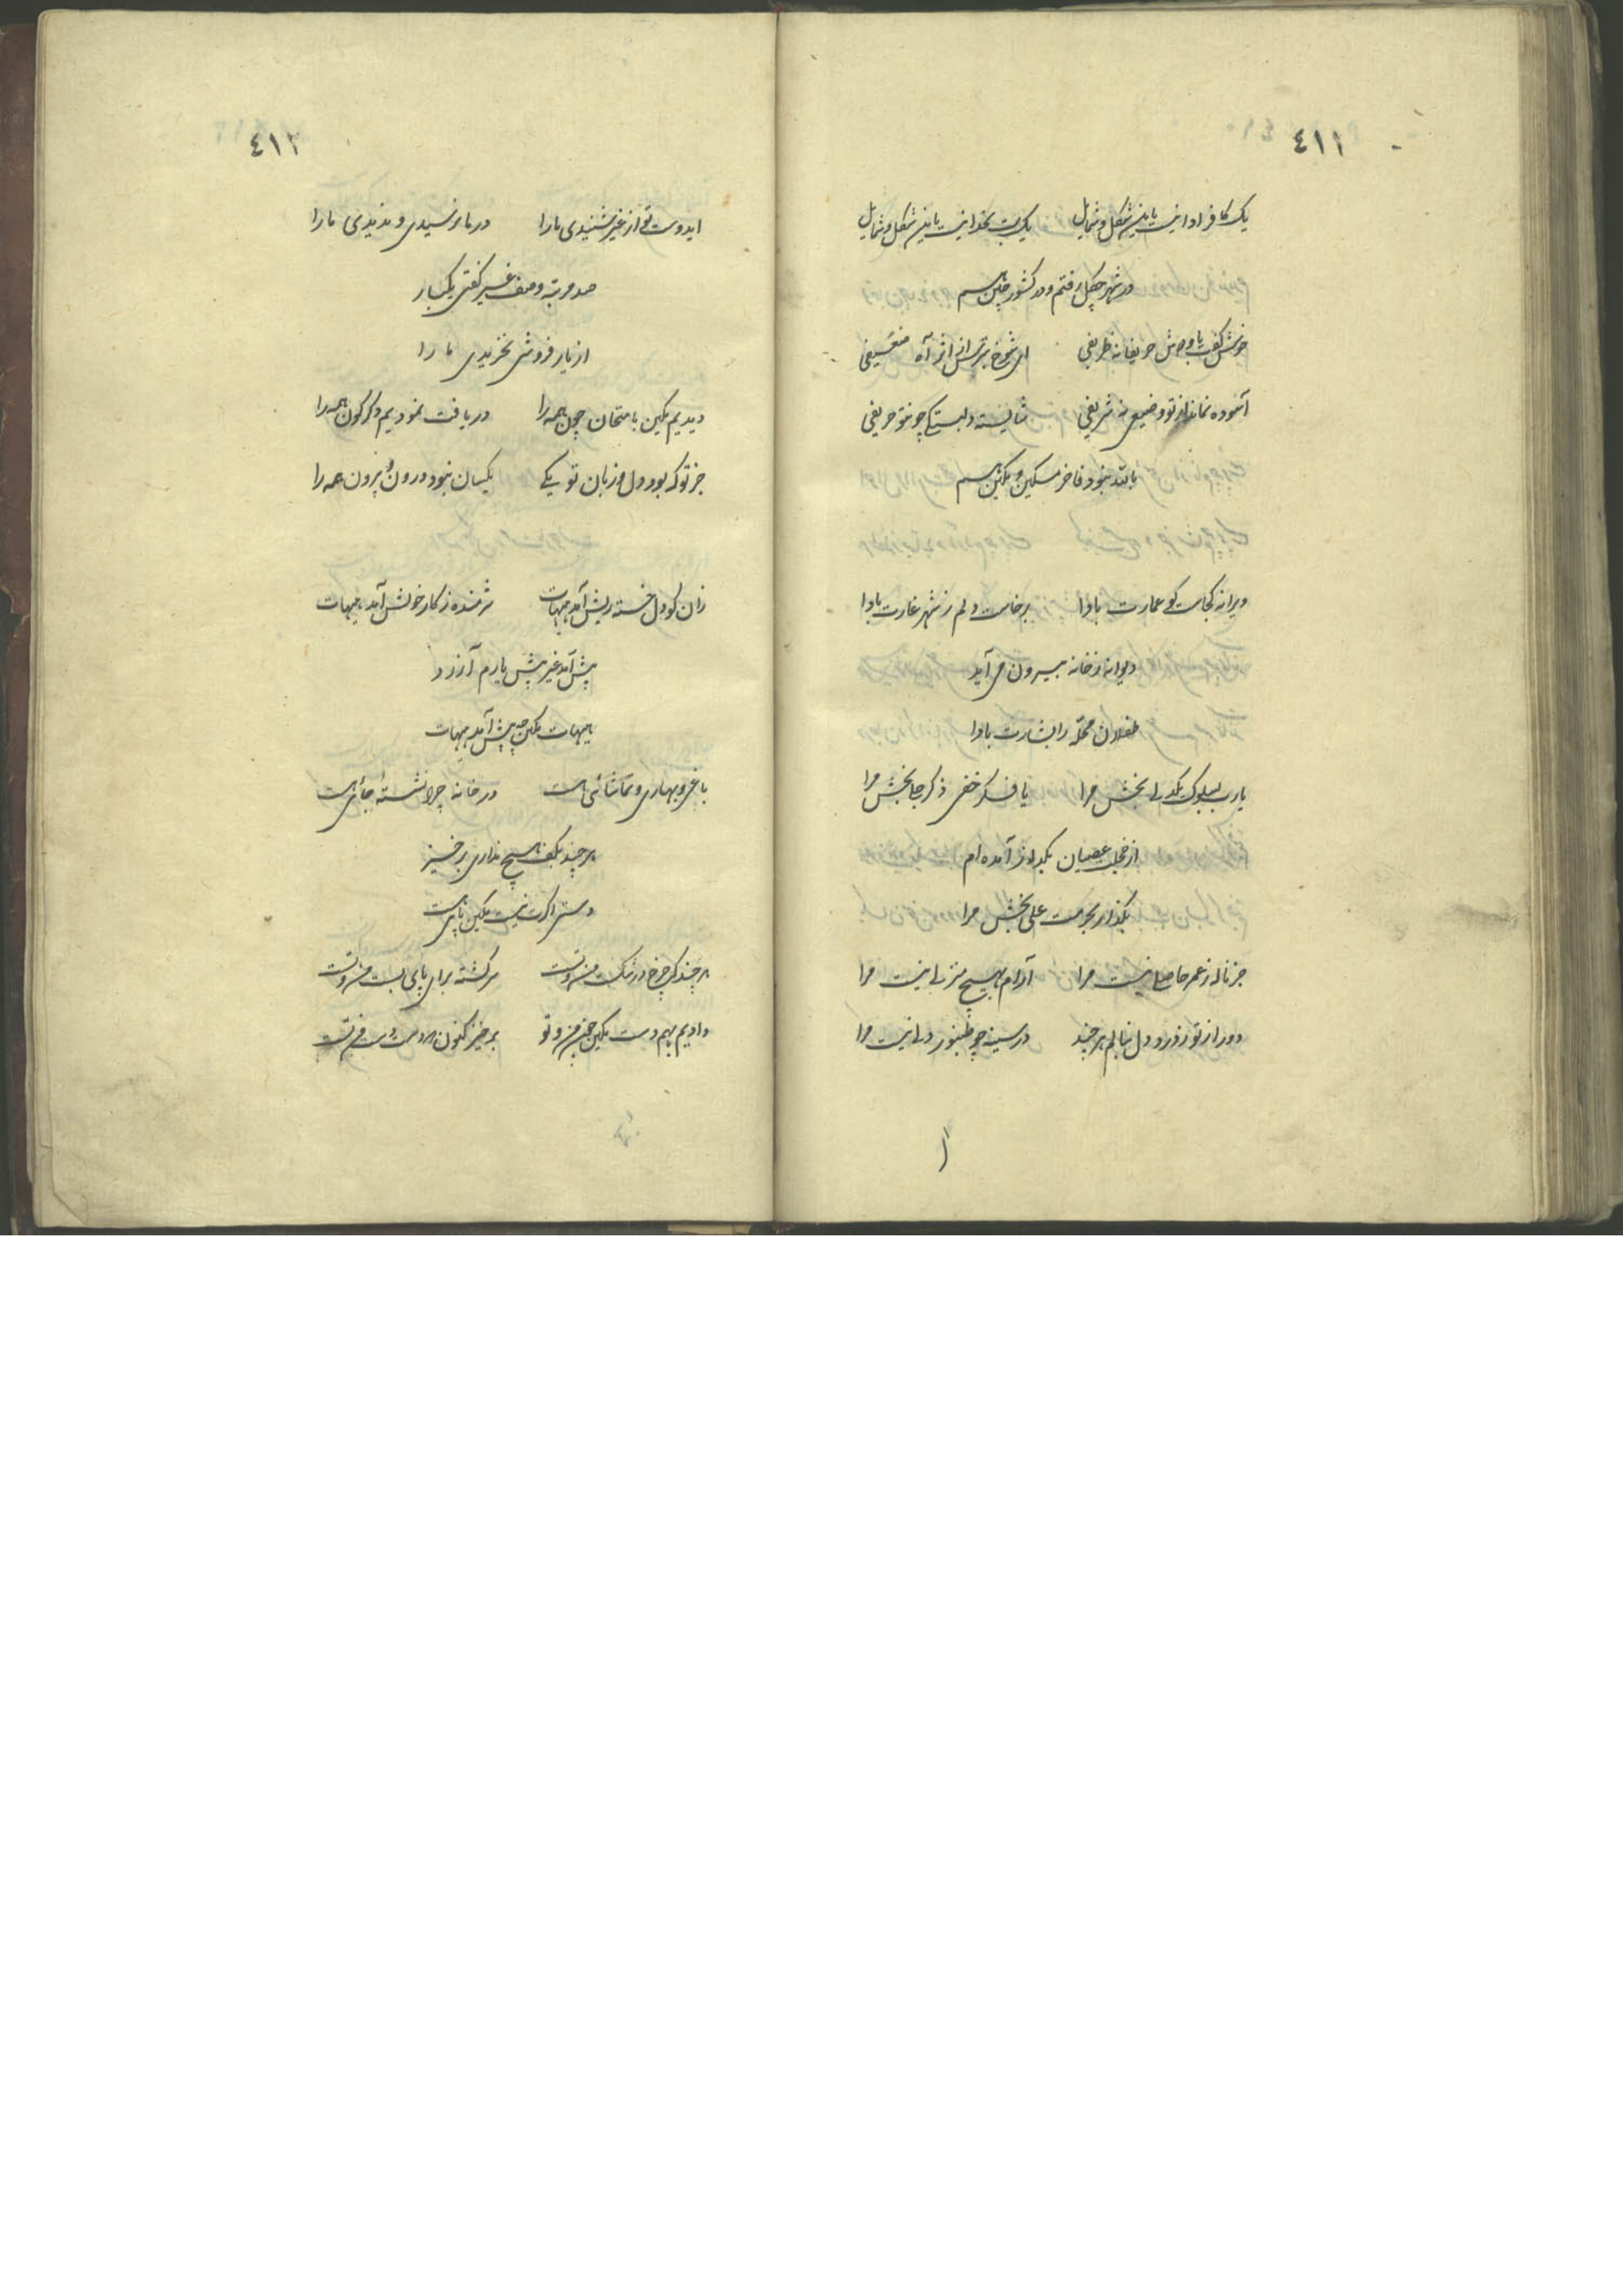 ٤١١
یک کافر ادا نیست باین شکل و شمایل یک بت بخدا نیست باین شکل و شمایل
در شهر چگل رفتم و در کشور چین هم
خوش گفت باو دوش حریفانه ظریفی ای شوخ بترس از اثر آه ضعیفی
آسوده نماند از تو وضیعی نه شریفی شایسته دلبستگی چو تو حریفی
بالله نبود فاخر مسکین و مکین هم
ویرانه کجاست کو عمارت بادا برخاست دلم ز شهر غارت بادا
دیوانه ز خانه بیرون می آید
طفلان محله را بشارت بادا
یا رب بسلوک یکدلی بخش مرا یا فکر خفی ذکر جلی بخش مرا
از خجلت عصیان بگداز آمده ام
بگذار بحرمت علی بخش مرا
جز ناله ز عمر حاصلی نیست مرا آرام بهیچ منزلی نیست مرا
دور از تو ز درد دل ننالم هر چند در سینه چو طنبور دلی نیست مرا
٤١٢
ایدوست تو از غیر شنیدی ما را در ما نرسیدی و ندیدی ما را
صد مرتبه وصف غیر گفتی یکبار
از یار فروشی نخریدی ما را
دیدیم مکین بامتحان چون همه را دریافت نمودیم دگرگون همه را
جز تو که بود دل و زبان تو یکی یکسان نبود درون و برون همه را
زان کو دل خسته ریش آمد هیهات شرمنده ز کار خویش آمد هیهات
پیش آمد غیر پیش یارم آزرد
هیهات مکین چه پیش آمد هیهات
باغی و بهاری و تماشائی هست در خانه چرا نشسته جائی هست
هر چند بکف هیچ نداری برخیز
دستی اگرت نیست مکین پائی هست
هر چند که چرخ در شکست من و تست سرگشته برای پای بست من و تست
دادیم بهم دست مکین چون من و تو برخیز کنون که دست دست من و تست